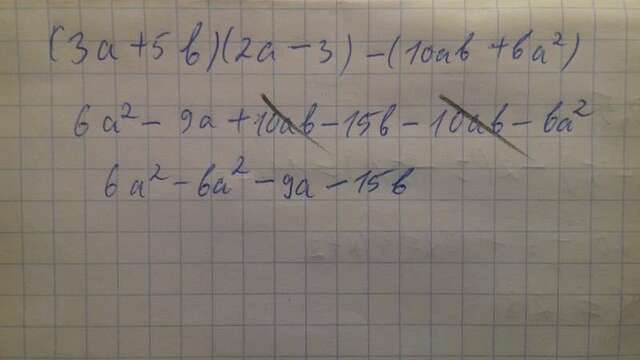 (3a+5b)(2a-3)-(10ab+6a²)
6a²-9a+10ab-15b-10ab-6a²
6a²-6a²-9a-15b